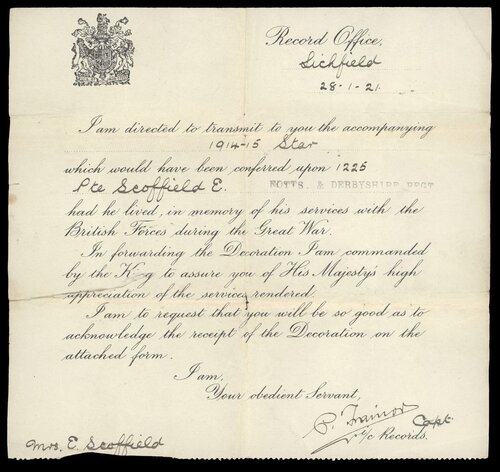 Record Office,
Lichfield
28-1-21.
I am directed to transmit to you the accompanying
1914-15 Star
which would have been conferred upon 1225
Pte Scoffield E. NOTTS. & DERBYSHIRE REGT
had he lived, in memory of his services with the
British Forces during the Great War.
In forwarding the Decoration I am commanded
by the K-g to assure you of His Majesty's high
appreciation of the services rendered.
I am to request that you will be so good as to
acknowledge the receipt of the Decoration on the
attached form.
I am,
Your obedient Servant,
Capt
i/c Records.
Mrs. E. Scoffield